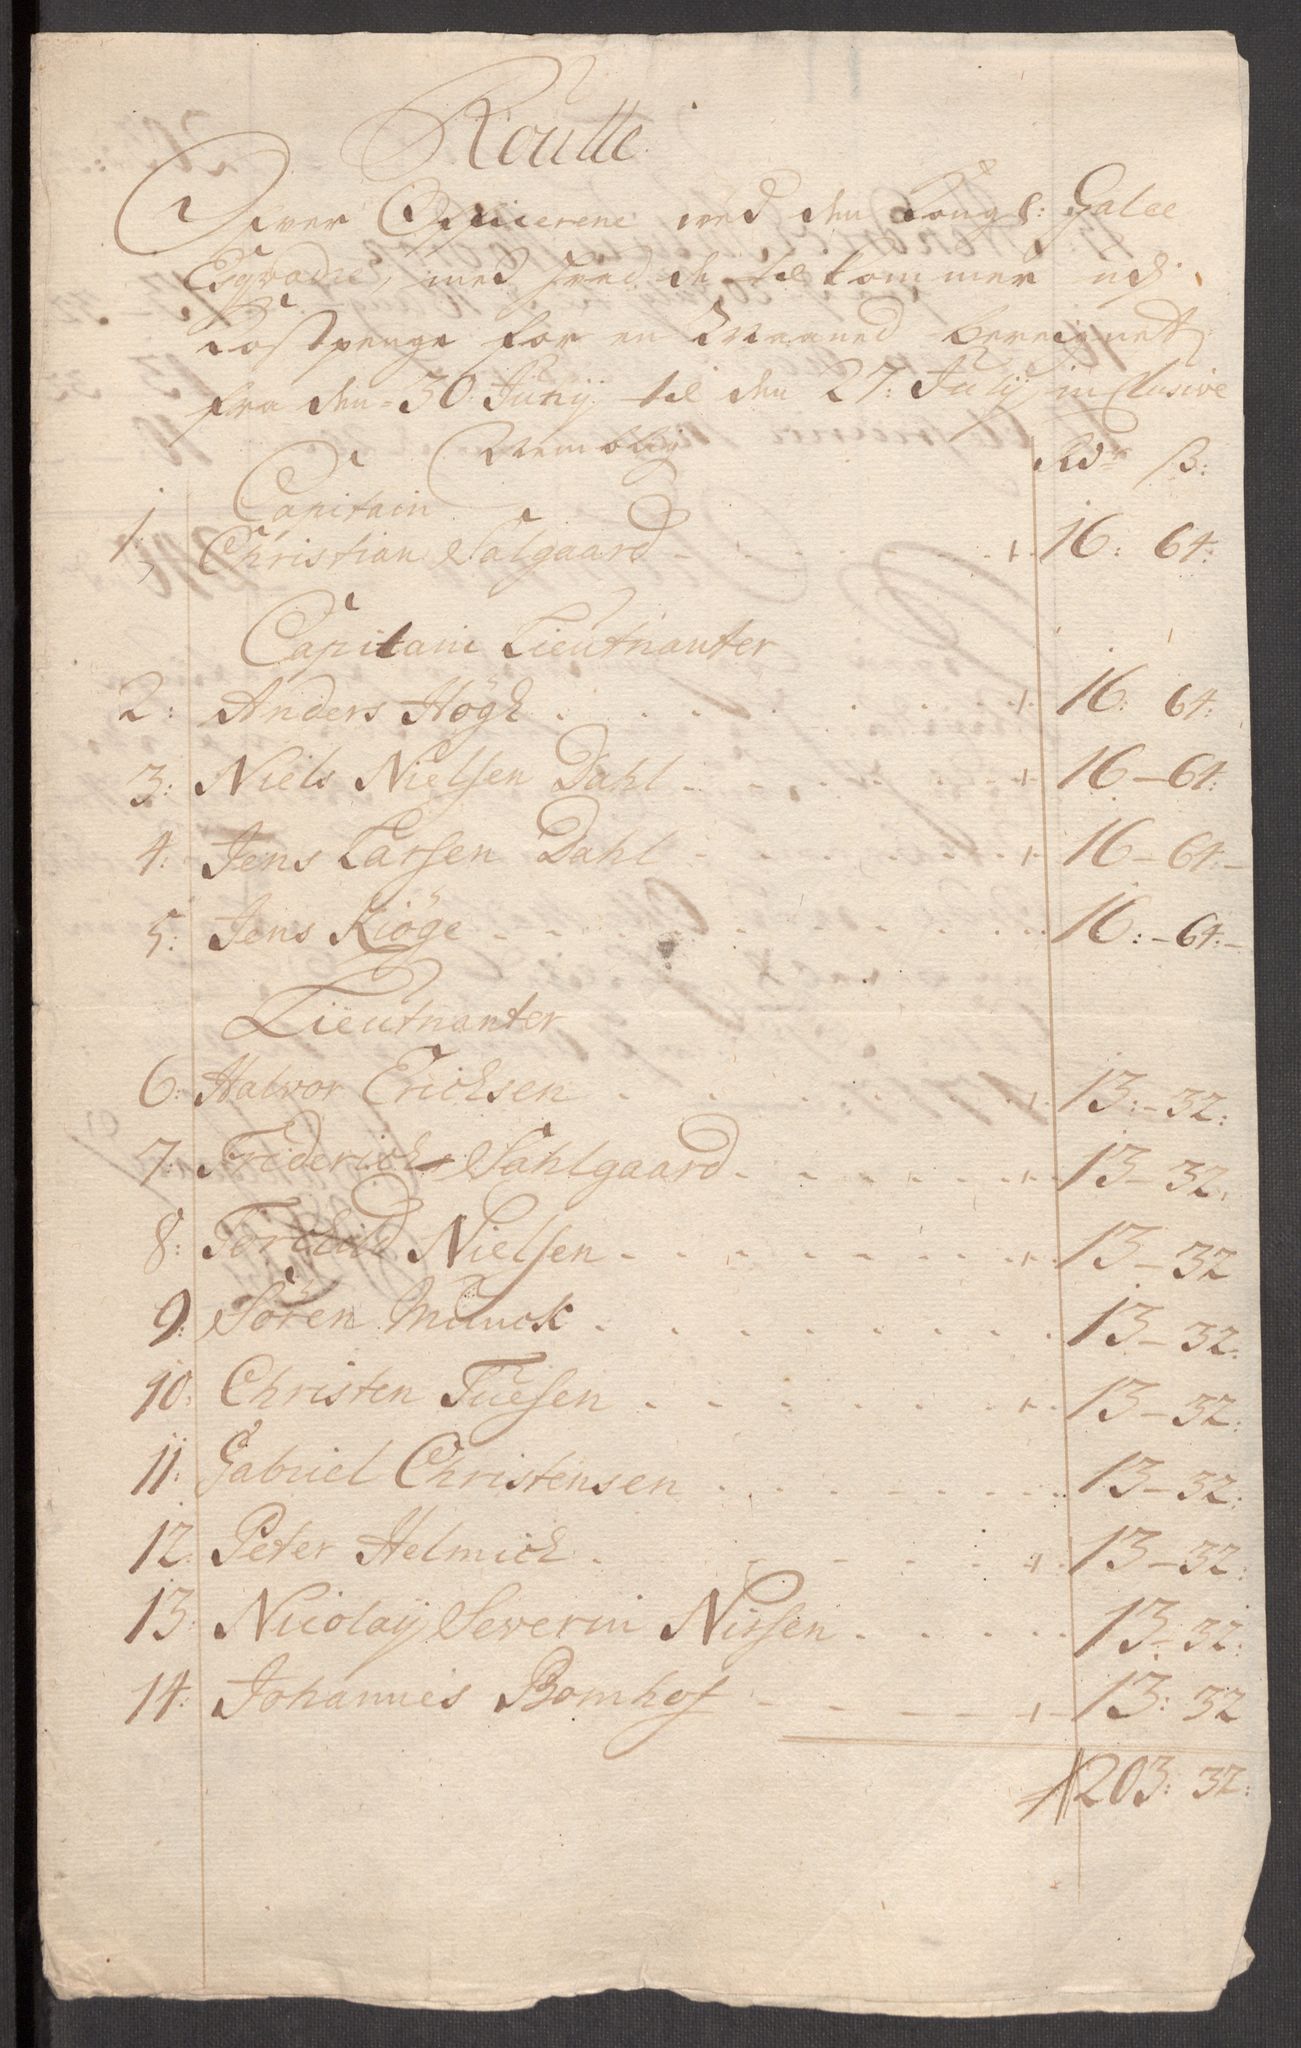 Roulle
Over Officerene ved den Kongl: Galee
Esqvadre, med hvad de tilkommer udj
Kostpenge for en Maaned bereignet
fra den 30 Junij til den 27: Julij inclusive
Nembligt
Rdr ß:
Capitain
1. Christian Salgaard 16: 64:
Capitain Lieutnanter
2: Anders Högh 16: 64:
3: Niels Nielsen Dahl 16 - 64:
4: Jens Larsen Dahl 16 - 64: -
5: Jens Kiöge 16: - 64: -
Lieutnanter
6: Halvor Erichsen 13: - 32:
7: Friderich Sahlgaard 13 - 32.
8: Nielsen 13 - 32
9: Sören Munck 13 - 32:
10: Christen Tuesen 13 - 32:
11: Gabriel Christensen 13 - 32:
12: Peter Helmich 13 - 32:
13: Nicolaÿ Severin Nissen 13 - 32:
14: Johannes Bomhof 13: 32
203: 32: